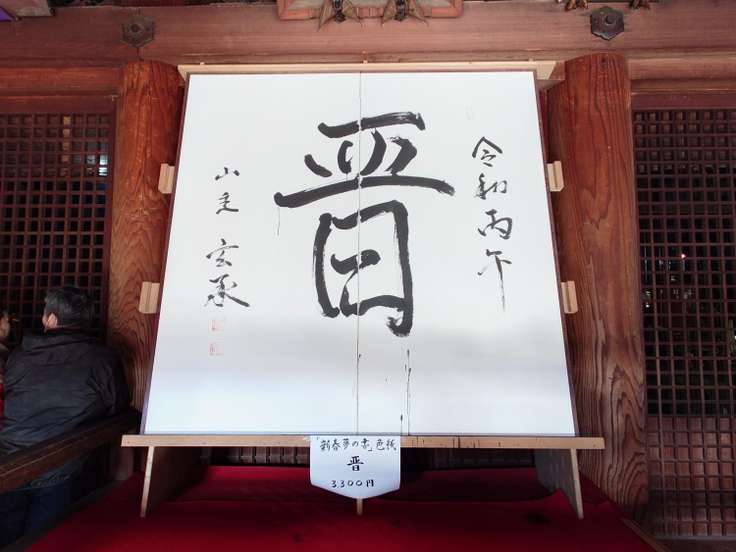 令和丙午
晋
小走
玄承
「新春夢の書」色紙
晋
3,300円